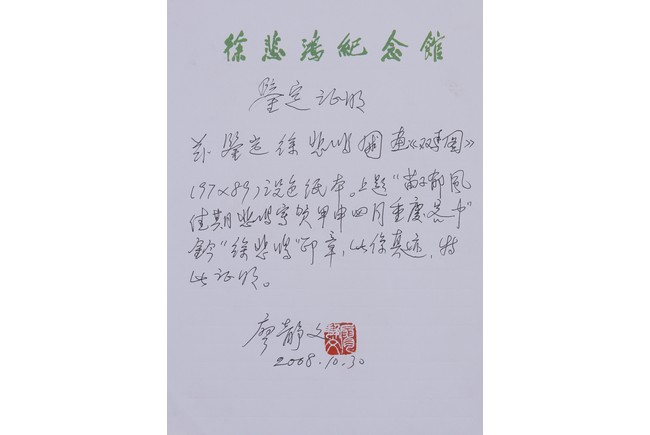 徐悲鸿纪念馆
鉴定证明
兹鉴定徐悲鸿国画《双青图》
(97×89)设色纸本。上题"苗子郁风
佳期悲鸿写贺甲申四月重庆客中"
钤"徐悲鸿"印章,此係真迹,特
此证明。
廖静文
2008.10.30